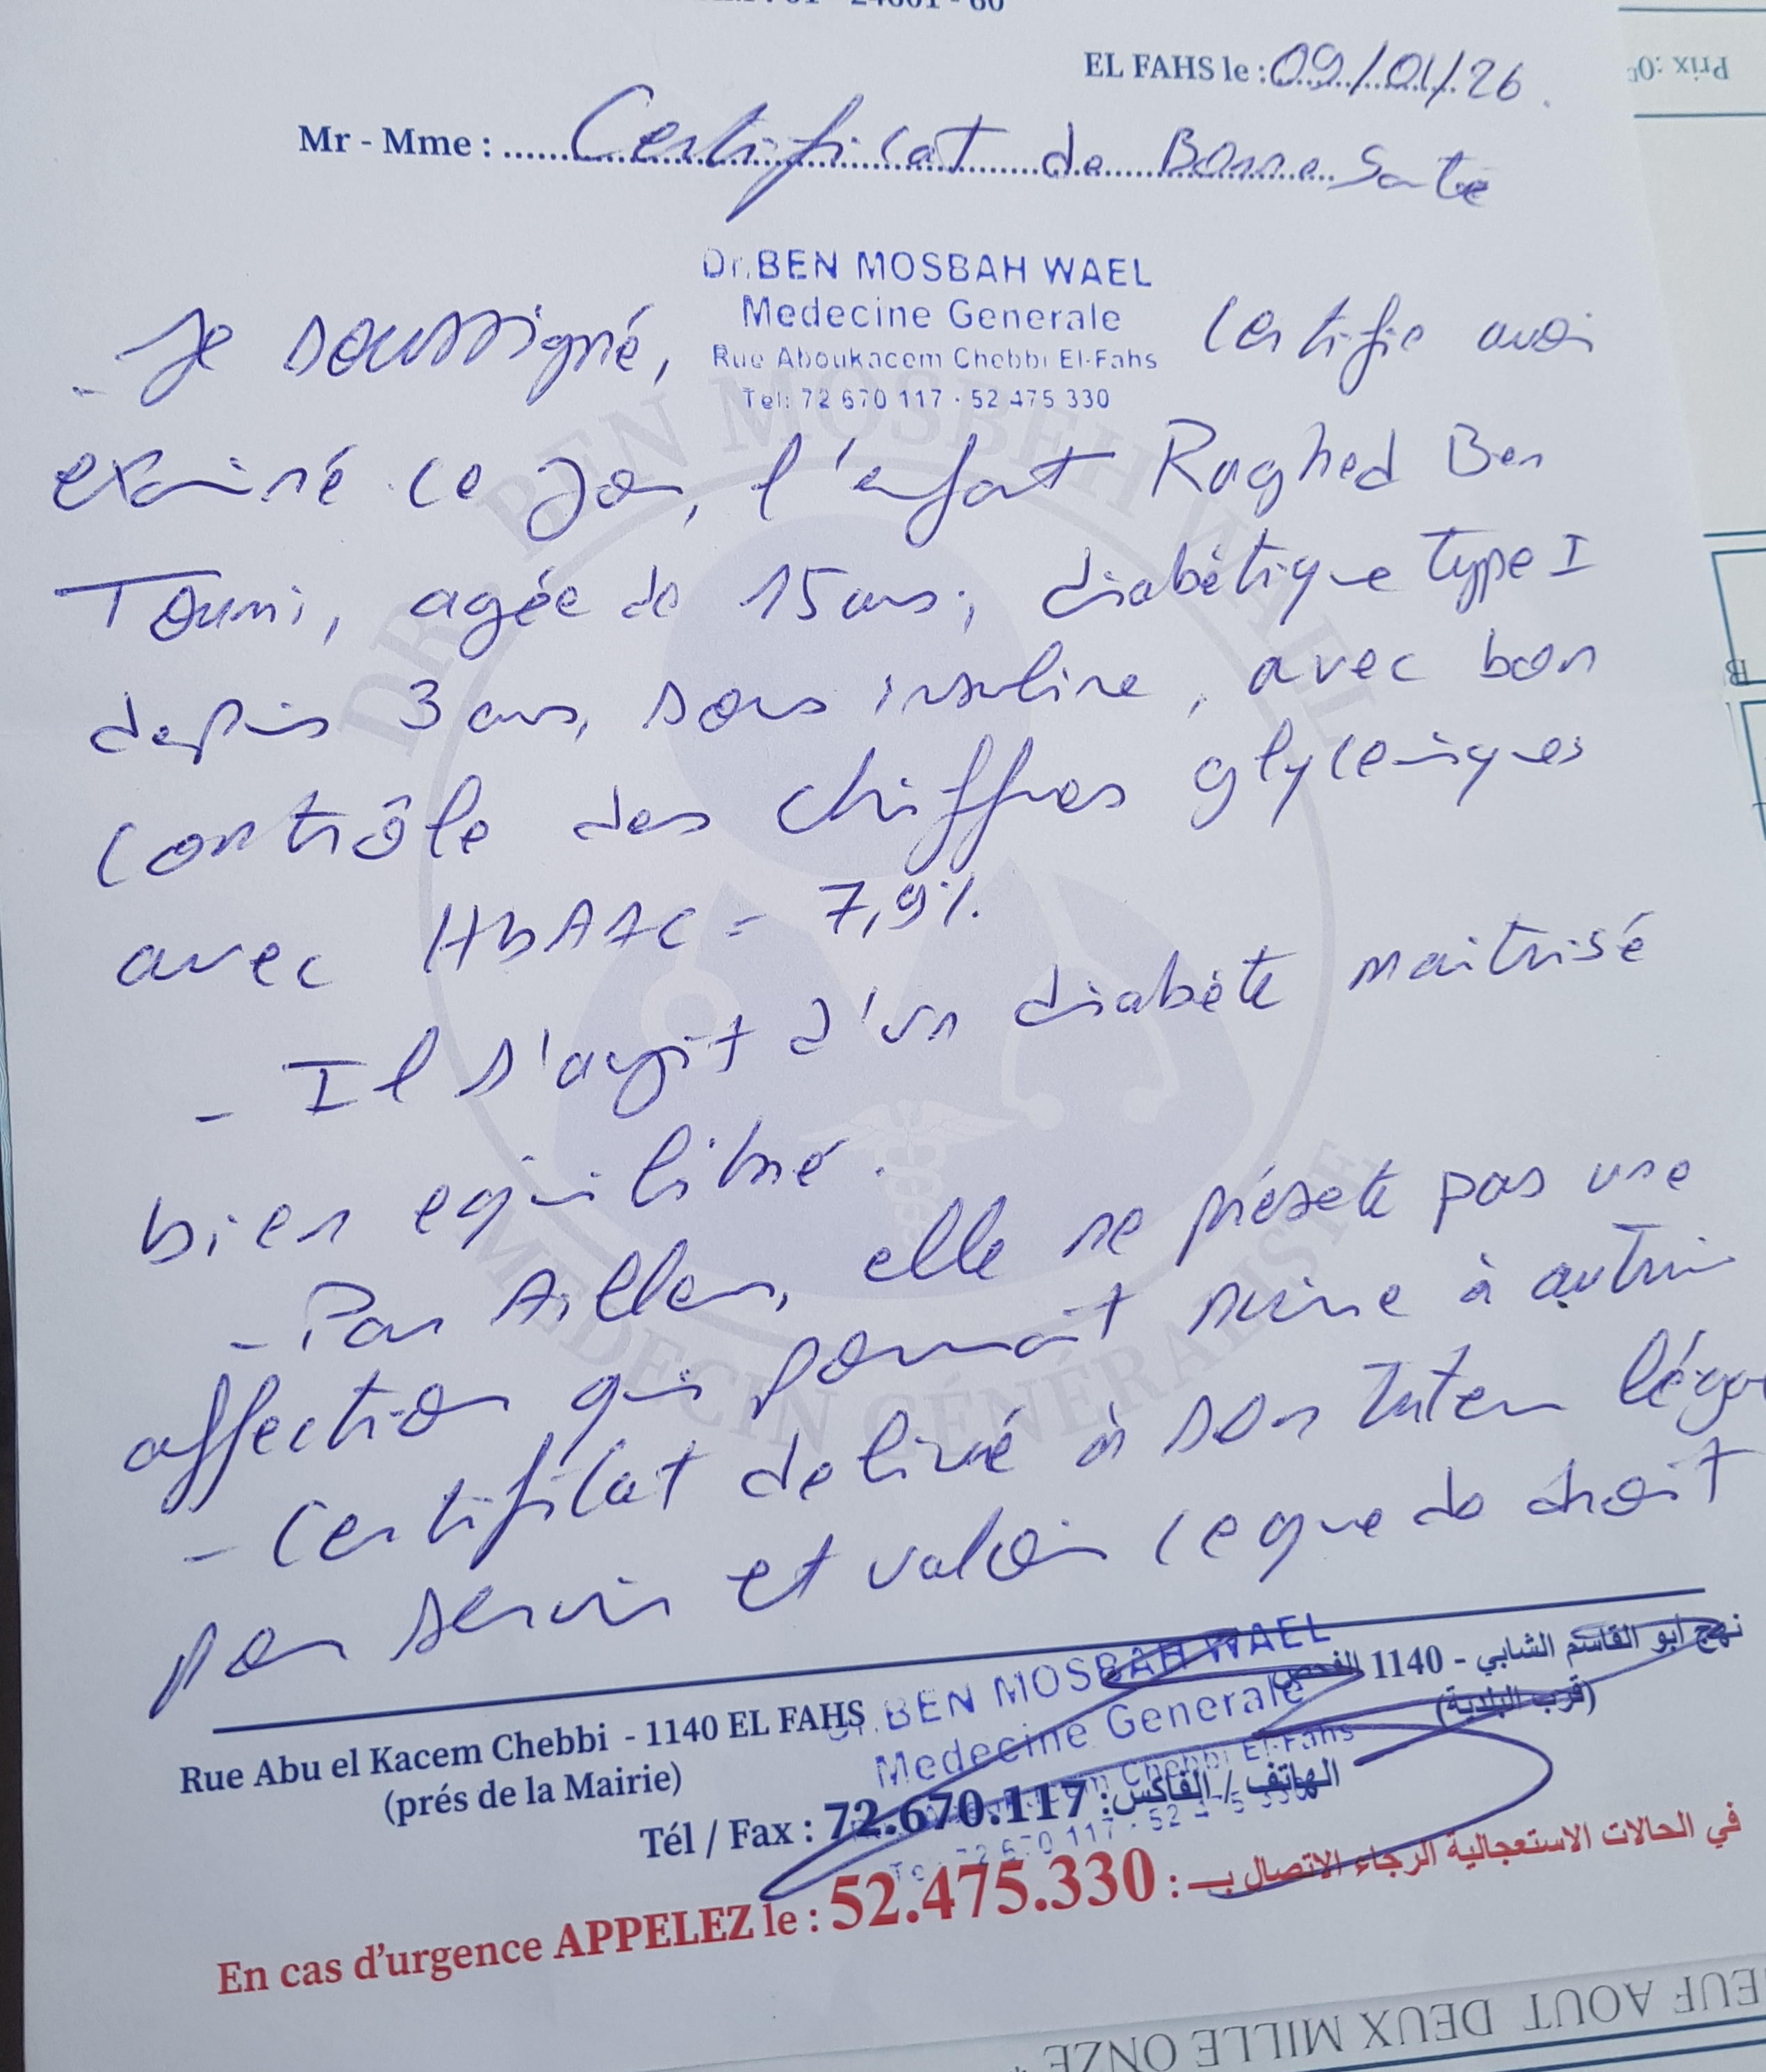 EL FAHS le : 09/01/26.
Mr - Mme : Certificat de Bonne Santé
Dr. BEN MOSBAH WAEL
Medecine Generale
Rue Aboukacem Chebbi El-Fahs
Tel: 72 670 117 - 52 475 330
- Je soussigné, certifie avoir
examiné ce Jour, l'enfant Raghed Ben
Toumi, agée de 15 ans, diabétique Type I
depuis 3 ans, sous insuline, avec bon
contrôle des chiffres glycemiques
avec HbA1C = 7,9%.
- Il s'agit d'un diabète maitrisé
bien equilibré.
- Par Ailleurs, elle ne présente pas une
affection qui pourrait nuire à autrui
- Certificat delivré à son tuteur légal
pour servir et valoir ce que de droit
DR BEN MOSBEH WAEL
MEDECIN GÉNÉRALISTE
Dr. BEN MOSBAH WAEL
Medecine Generale
Chebbi El-Fahs
Tel: 72 670 117 - 52 475 330
Rue Abu el Kacem Chebbi - 1140 EL FAHS
(prés de la Mairie)
نهج ابو القاسم الشابي - 1140 الفحص
(قرب البلدية)
Tél / Fax : 72.670.117 : الهاتف / الفاكس
En cas d'urgence APPELEZ le : 52.475.330 : في الحالات الاستعجالية الرجاء الاتصال بـ
Prix :
EUF AOUT DEUX MILLE ONZE *